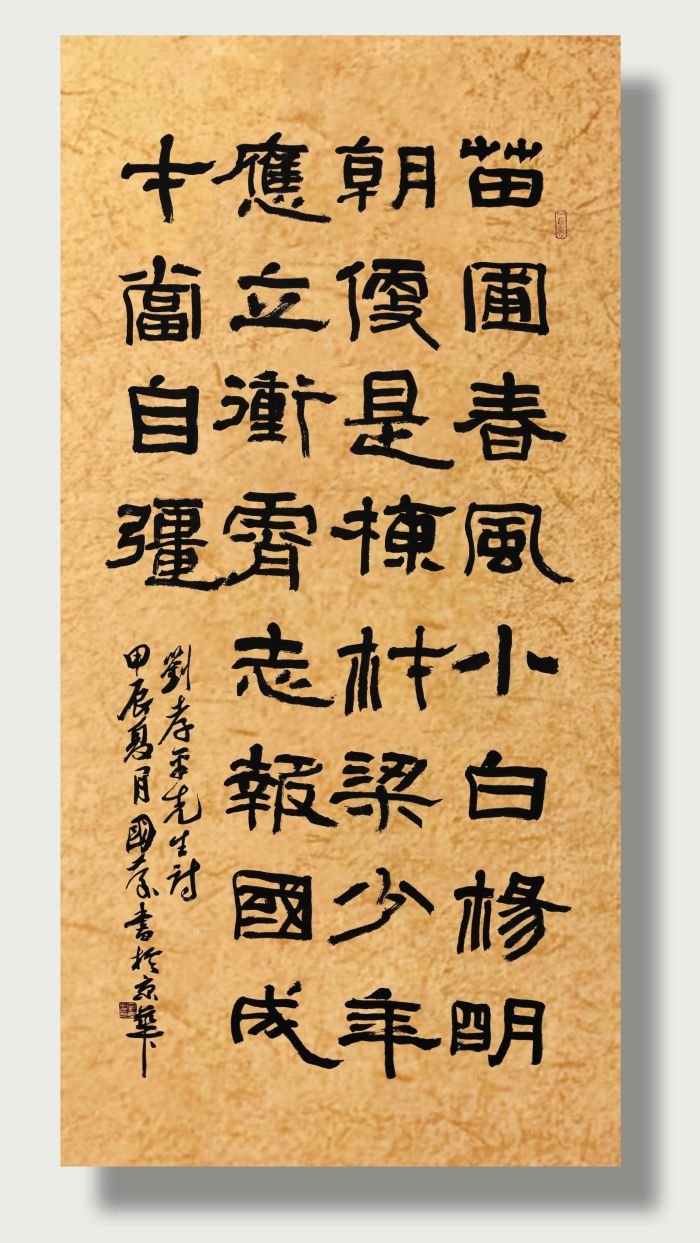 苗圃春風小白楊明
朝便是棟材梁少年
應立衝霄志報國成
才當自彊
劉孝平先生詩
甲辰夏月國蒙書於京華